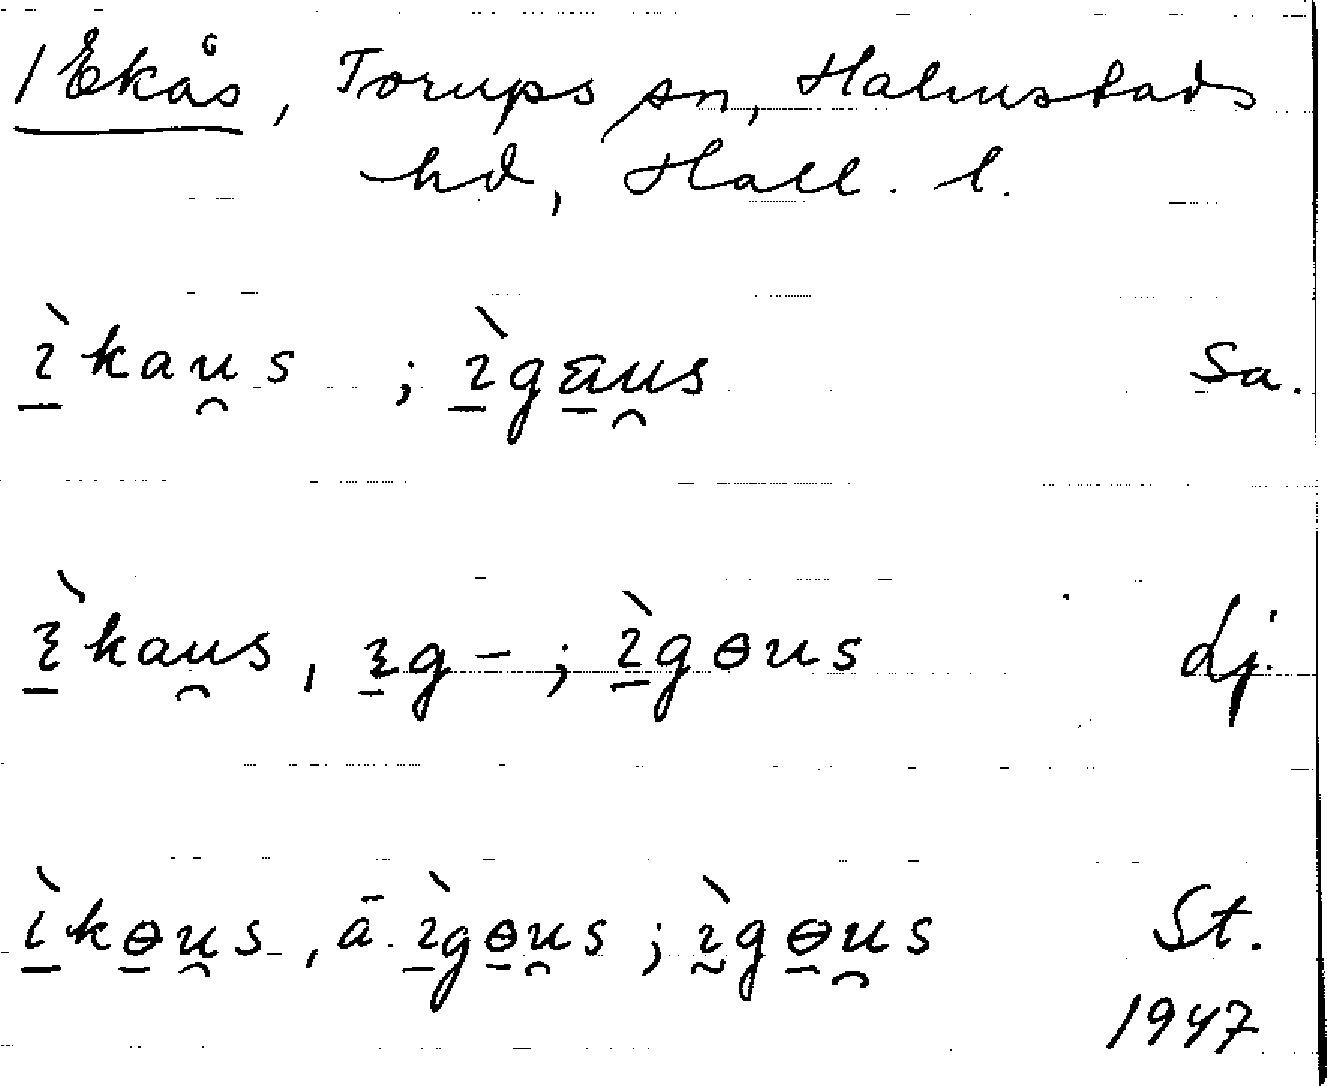 / Ekås, Torups sn, Halmstads
hd, Hall. l.
ɩ̱̀kau̯s ; ɩ̱̀ga̱u̯s Sa.
ɩ̱̀kau̯s, ɩ̱g- ; ɩ̱̀gɵus Lj.
ɩ̱̀kɵ̱u̯s, ä. ɩ̱̀gɵ̱u̯s ; ɩ̰̀gɵ̱u̯s St.
1947